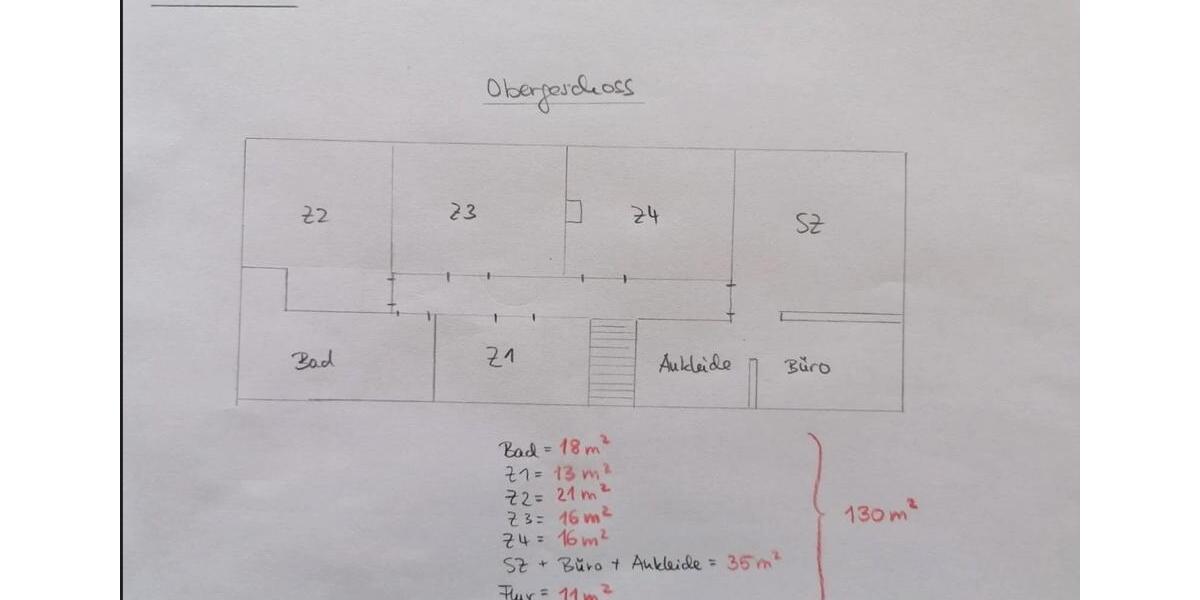 Obergeschoss
Z2 Z3 Z4 SZ
Bad Z1 Ankleide Büro
Bad = 18 m²
Z1 = 13 m²
Z2 = 21 m²
Z3 = 16 m²
Z4 = 16 m²
SZ + Büro + Ankleide = 35 m²
130 m²
Flur = 11 m²